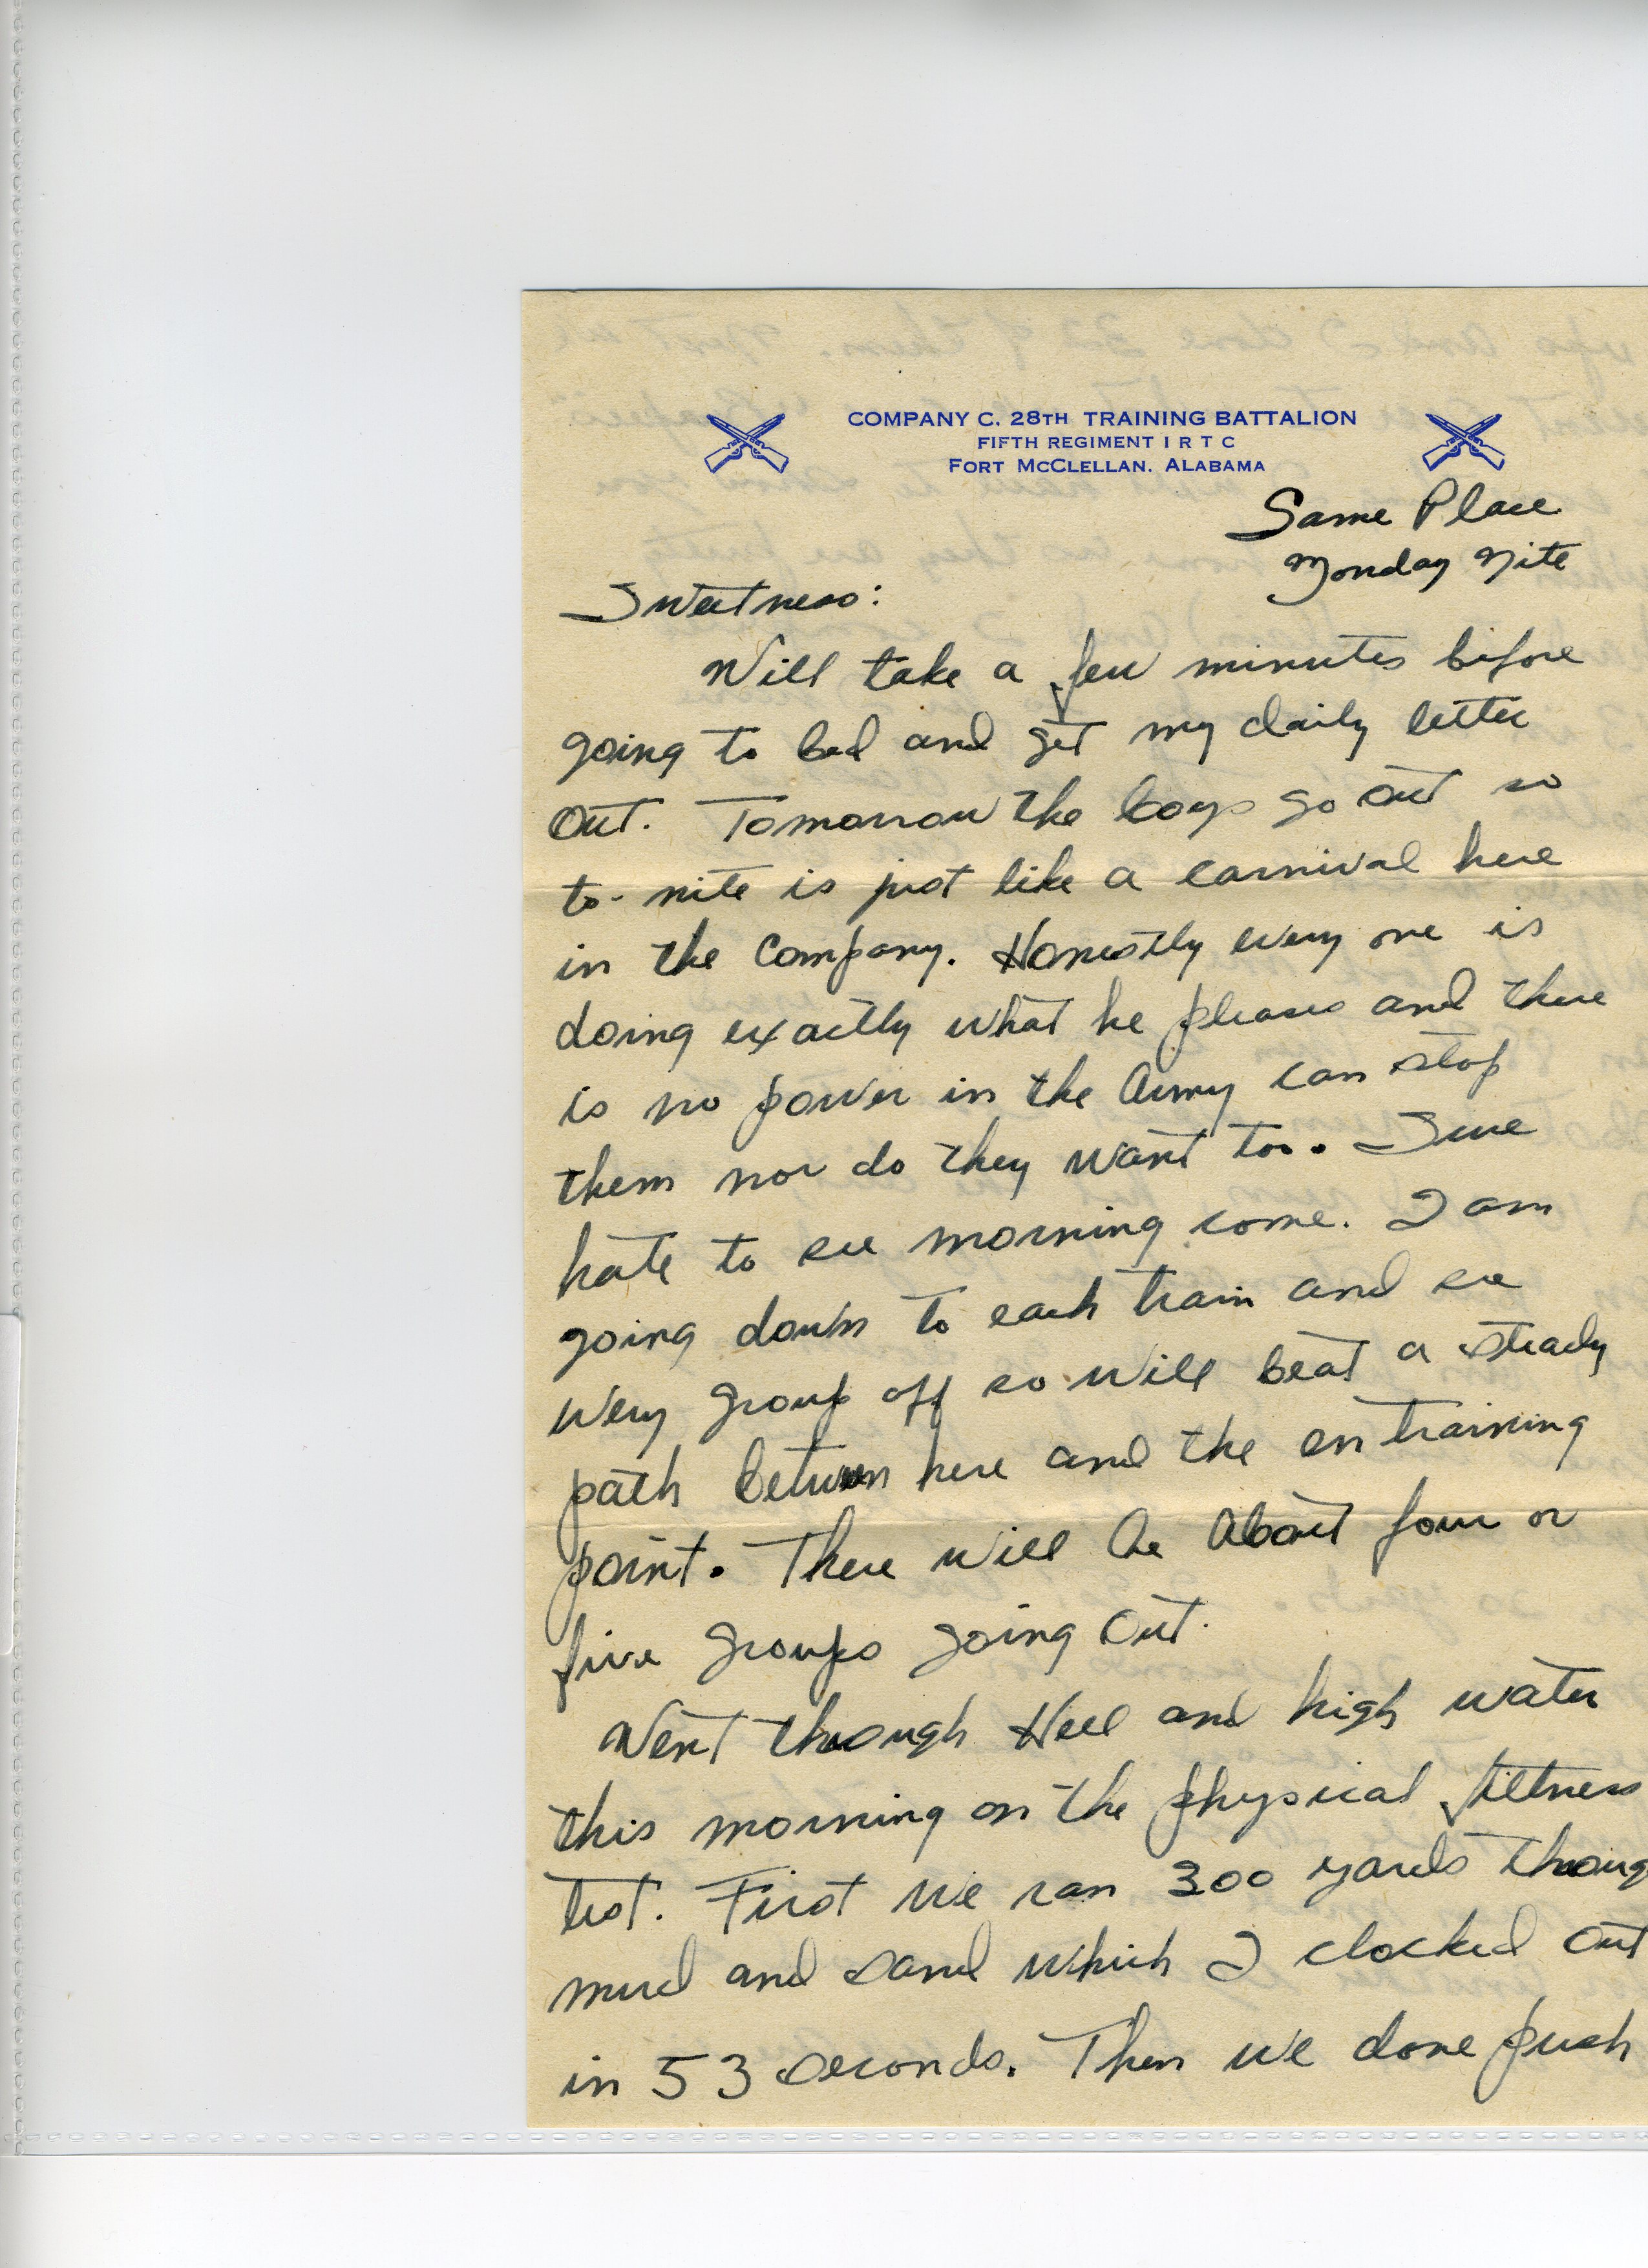 COMPANY C. 28TH TRAINING BATTALION
FIFTH REGIMENT I R T C
FORT MCCLELLAN. ALABAMA
Same Place
Monday Nite
Sweetness:
Will take a few minutes before
going to bed and get my daily letter
out. Tomorrow the boys go out so
to-nite is just like a carnival here
in the Company. Honestly every one is
doing exactly what he pleases and there
is no power in the Army can stop
them nor do they want too. Sure
hate to see morning come. I am
going down to each train and see
every group off so will beat a steady
path between here and the entraining
point. There will be about four or
five groups going out.
Went through Hell and high water
this morning on the physical fittness
test. First we ran 300 yards throug
mud and sand which I clocked out
in 53 seconds. Then we done push